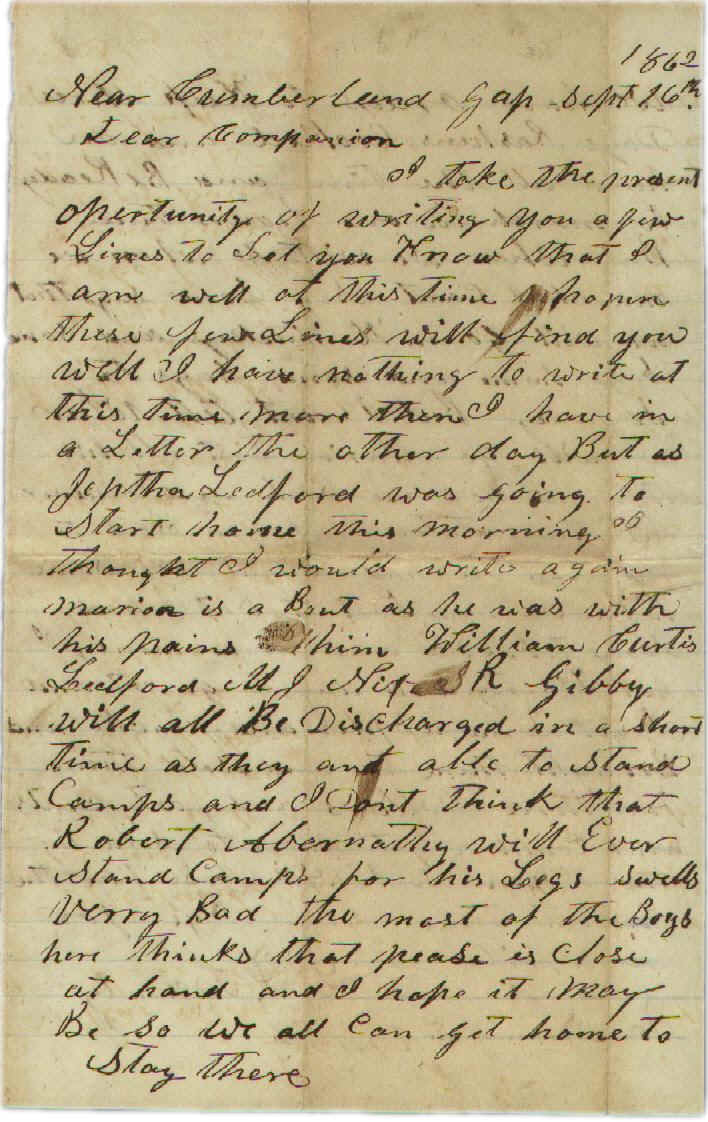 1862
Near Cumberland Gap Sept 16th
Dear Companion
I take the present
opertunity of writing you a few
Lines to Let you Know that I
am well at this time hopen
these few Lines will find you
well I have nothing to write at
this time more then I have in
a Letter the other day But as
Jeptha Ledford was going to
Start home this morning I
thought I would write again
marion is a Bout as he was with
his pains him William Curtis
Ledford M J R Gibby
will all Be Discharged in a short
time as they ant able to stand
Camps and I Dont think that
Robert Abernathy will Ever
stand Camps for his Legs swells
verry Bad the most of the Boys
here thinks that pease is close
at hand and I hope it may
Be so we all can get home to
Stay there